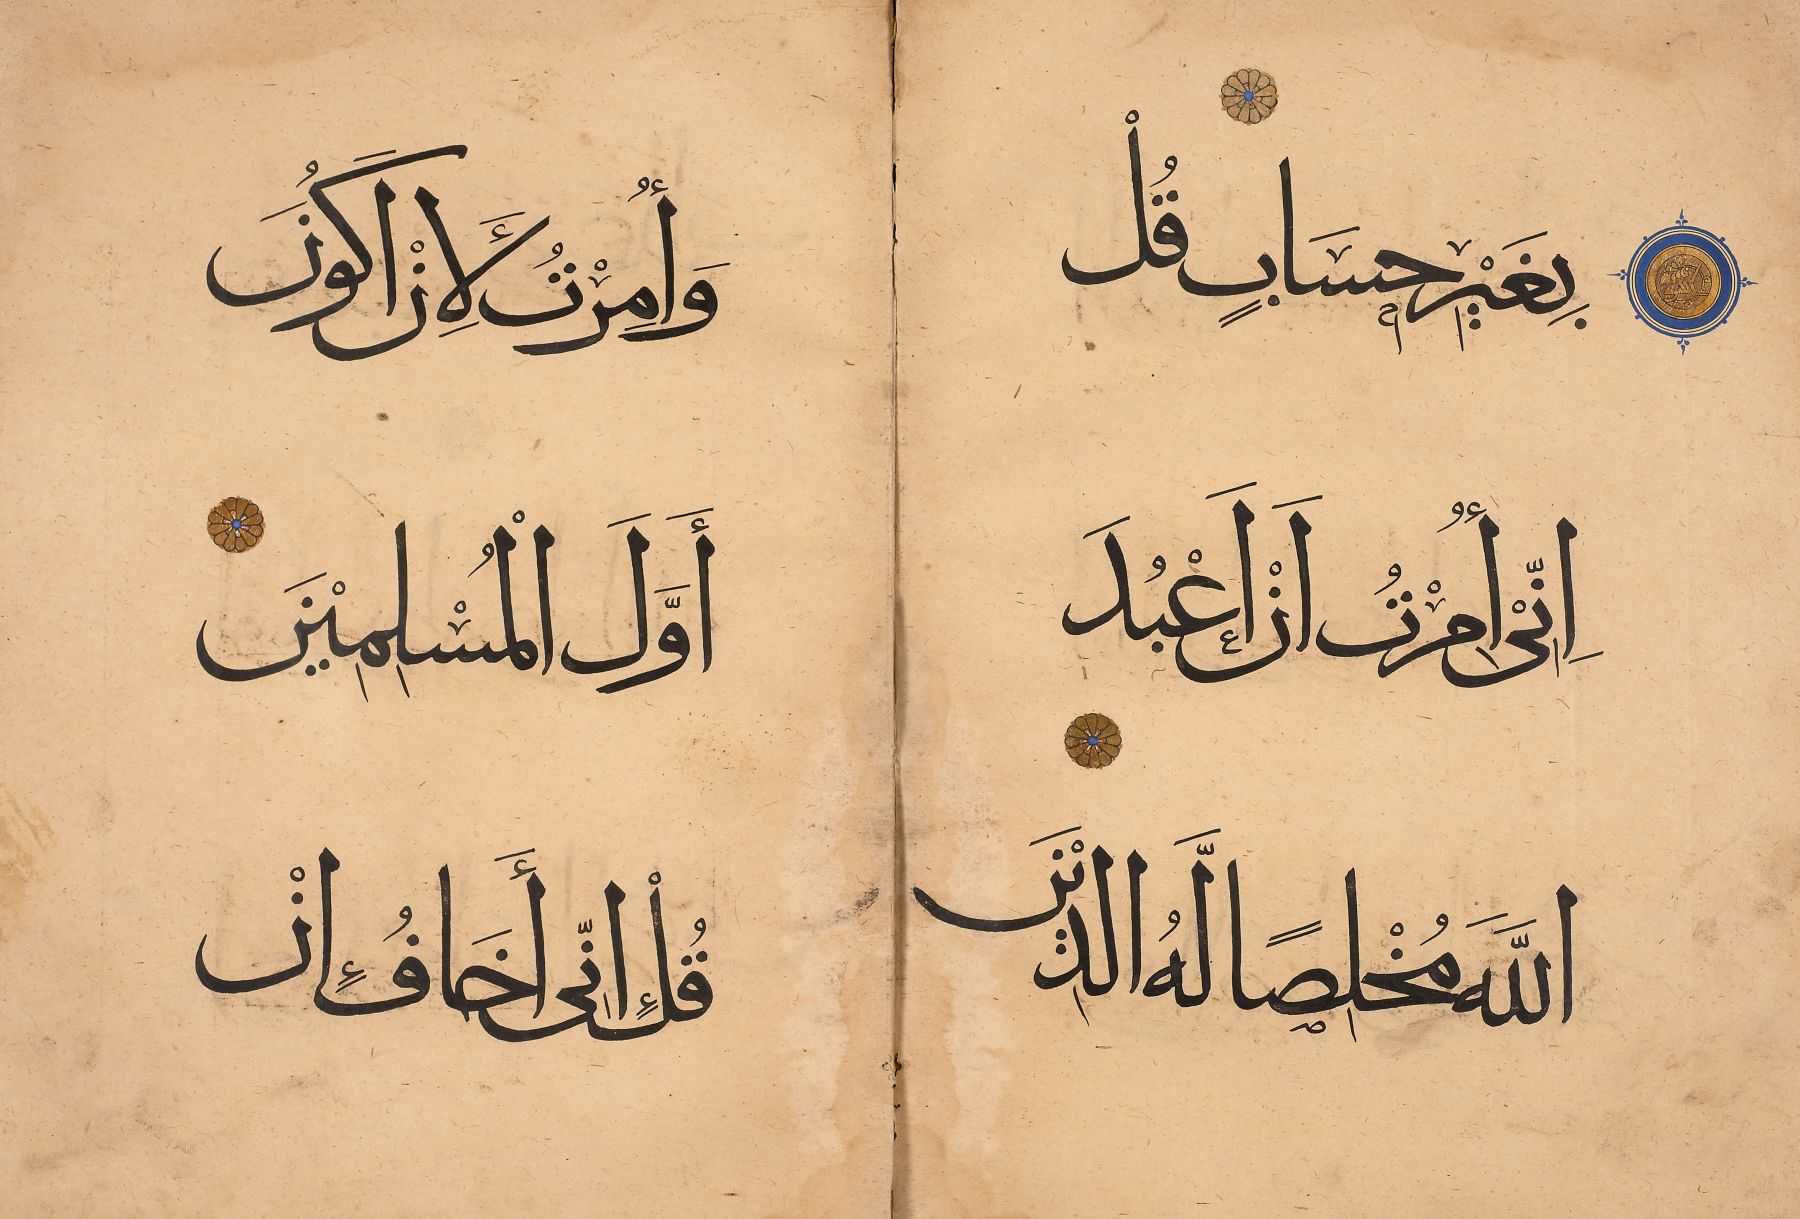 بِغَيْرِ حِسَابٍ قُلْ
اِنِّيْ أُمِرْتُ اَنْ اَعْبُدَ
اللَّهَ مُخْلِصًا لَّهُ الدِّيْنَ
وَأُمِرْتُ لِأَنْ اَكُونَ
أَوَّلَ الْمُسْلِمِيْنَ
قُلْ اِنِّي أَخَافُ اِنْ